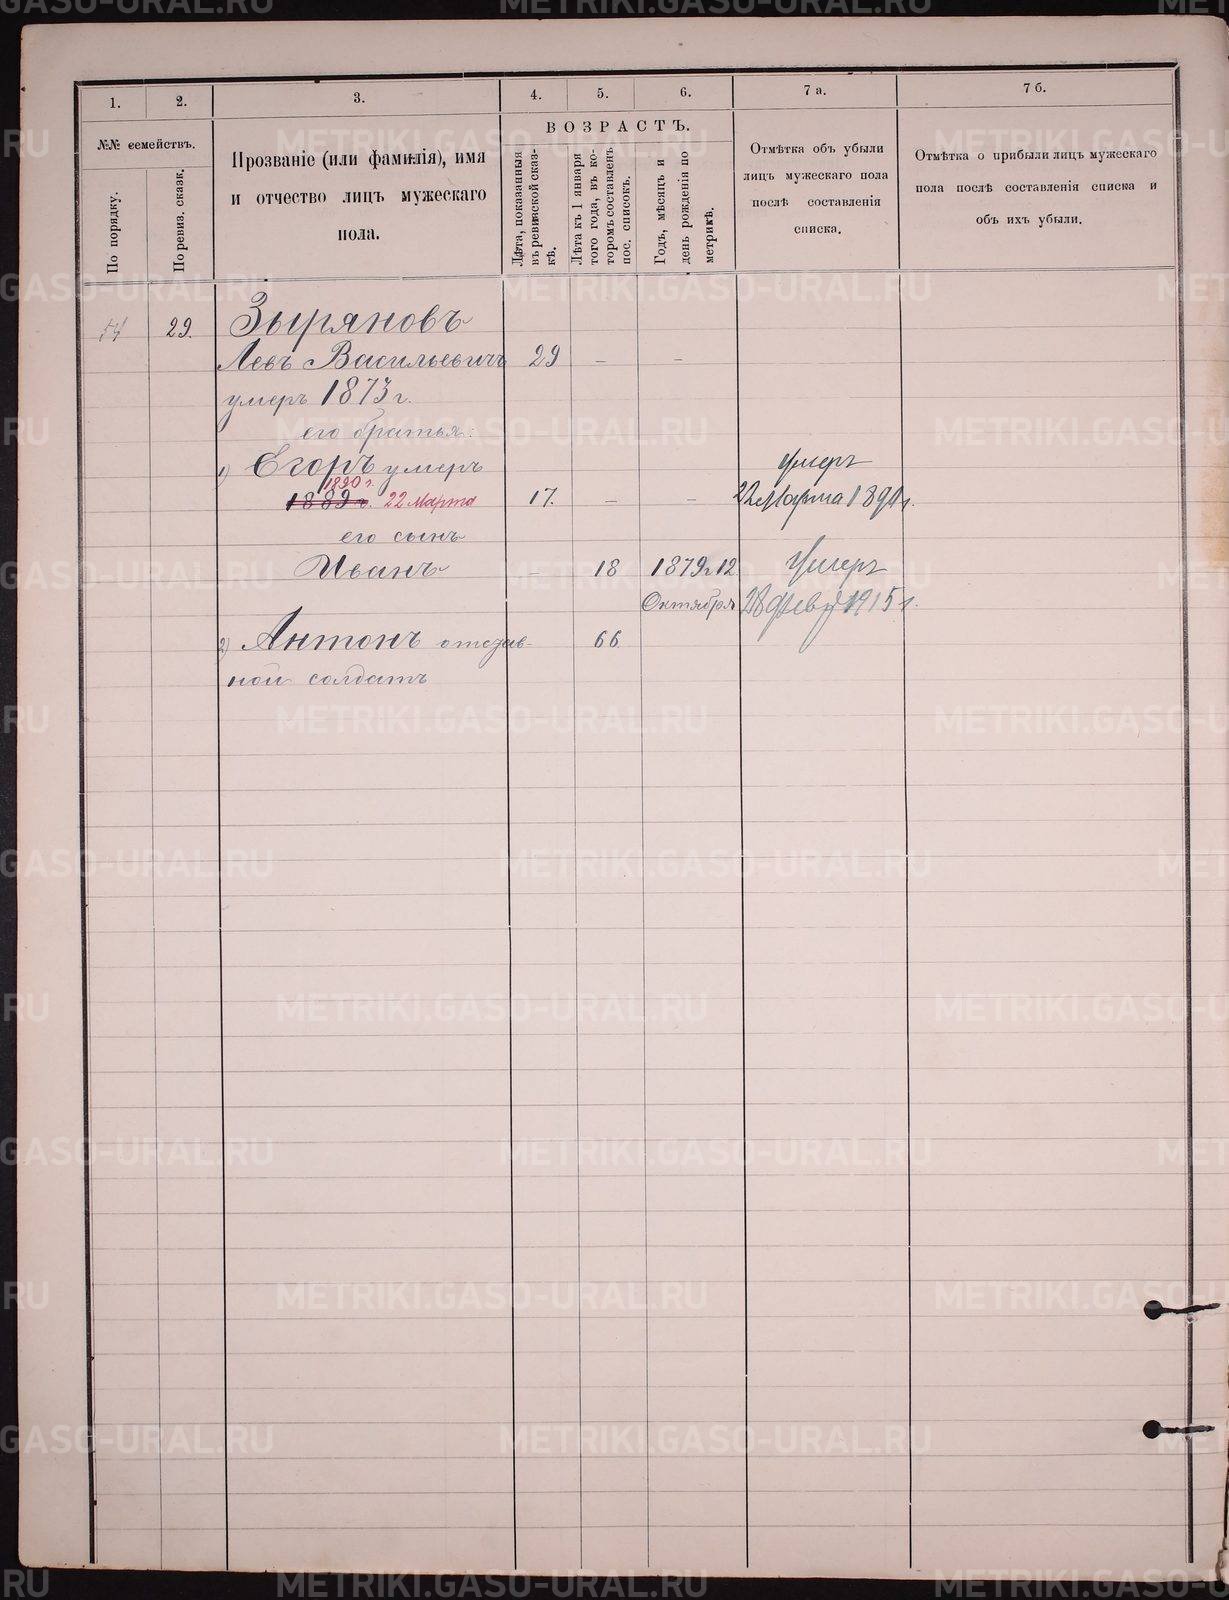 1.
2.
3.
4.
5.
6.
7 а.
7 б.
№№ семействъ.
По порядку.
По ревиз. сказк.
Прозваніе (или фамилія), имя
и отчество лицъ мужескаго
пола.
ВОЗРАСТЪ.
Лѣта, показанныя
въ ревизской сказ-
кѣ.
Лѣта къ 1 января
того года, въ ко-
торомъ составленъ
пос. списокъ.
Годъ, мѣсяцъ и
день рожденія по
метрикѣ.
Отмѣтка объ убыли
лицъ мужескаго пола
послѣ составленія
списка.
Отмѣтка о прибыли лицъ мужескаго
пола послѣ составленія списка и
объ ихъ убыли.
29. Зыряновъ
Левъ Васильевичъ 29 - -
умеръ 1873 г.
его братья:
1) Егоръ умеръ Умеръ
1890 г.
1889 г. 22 Марта 17. - - 22 Марта 1890 г.
его сынъ
Иванъ - 18 1879 г. 12 Умеръ
Октября 28 февр 1915 г.
2) Антонъ отстав- 66
ной солдатъ
METRIKI.GASO-URAL.RU